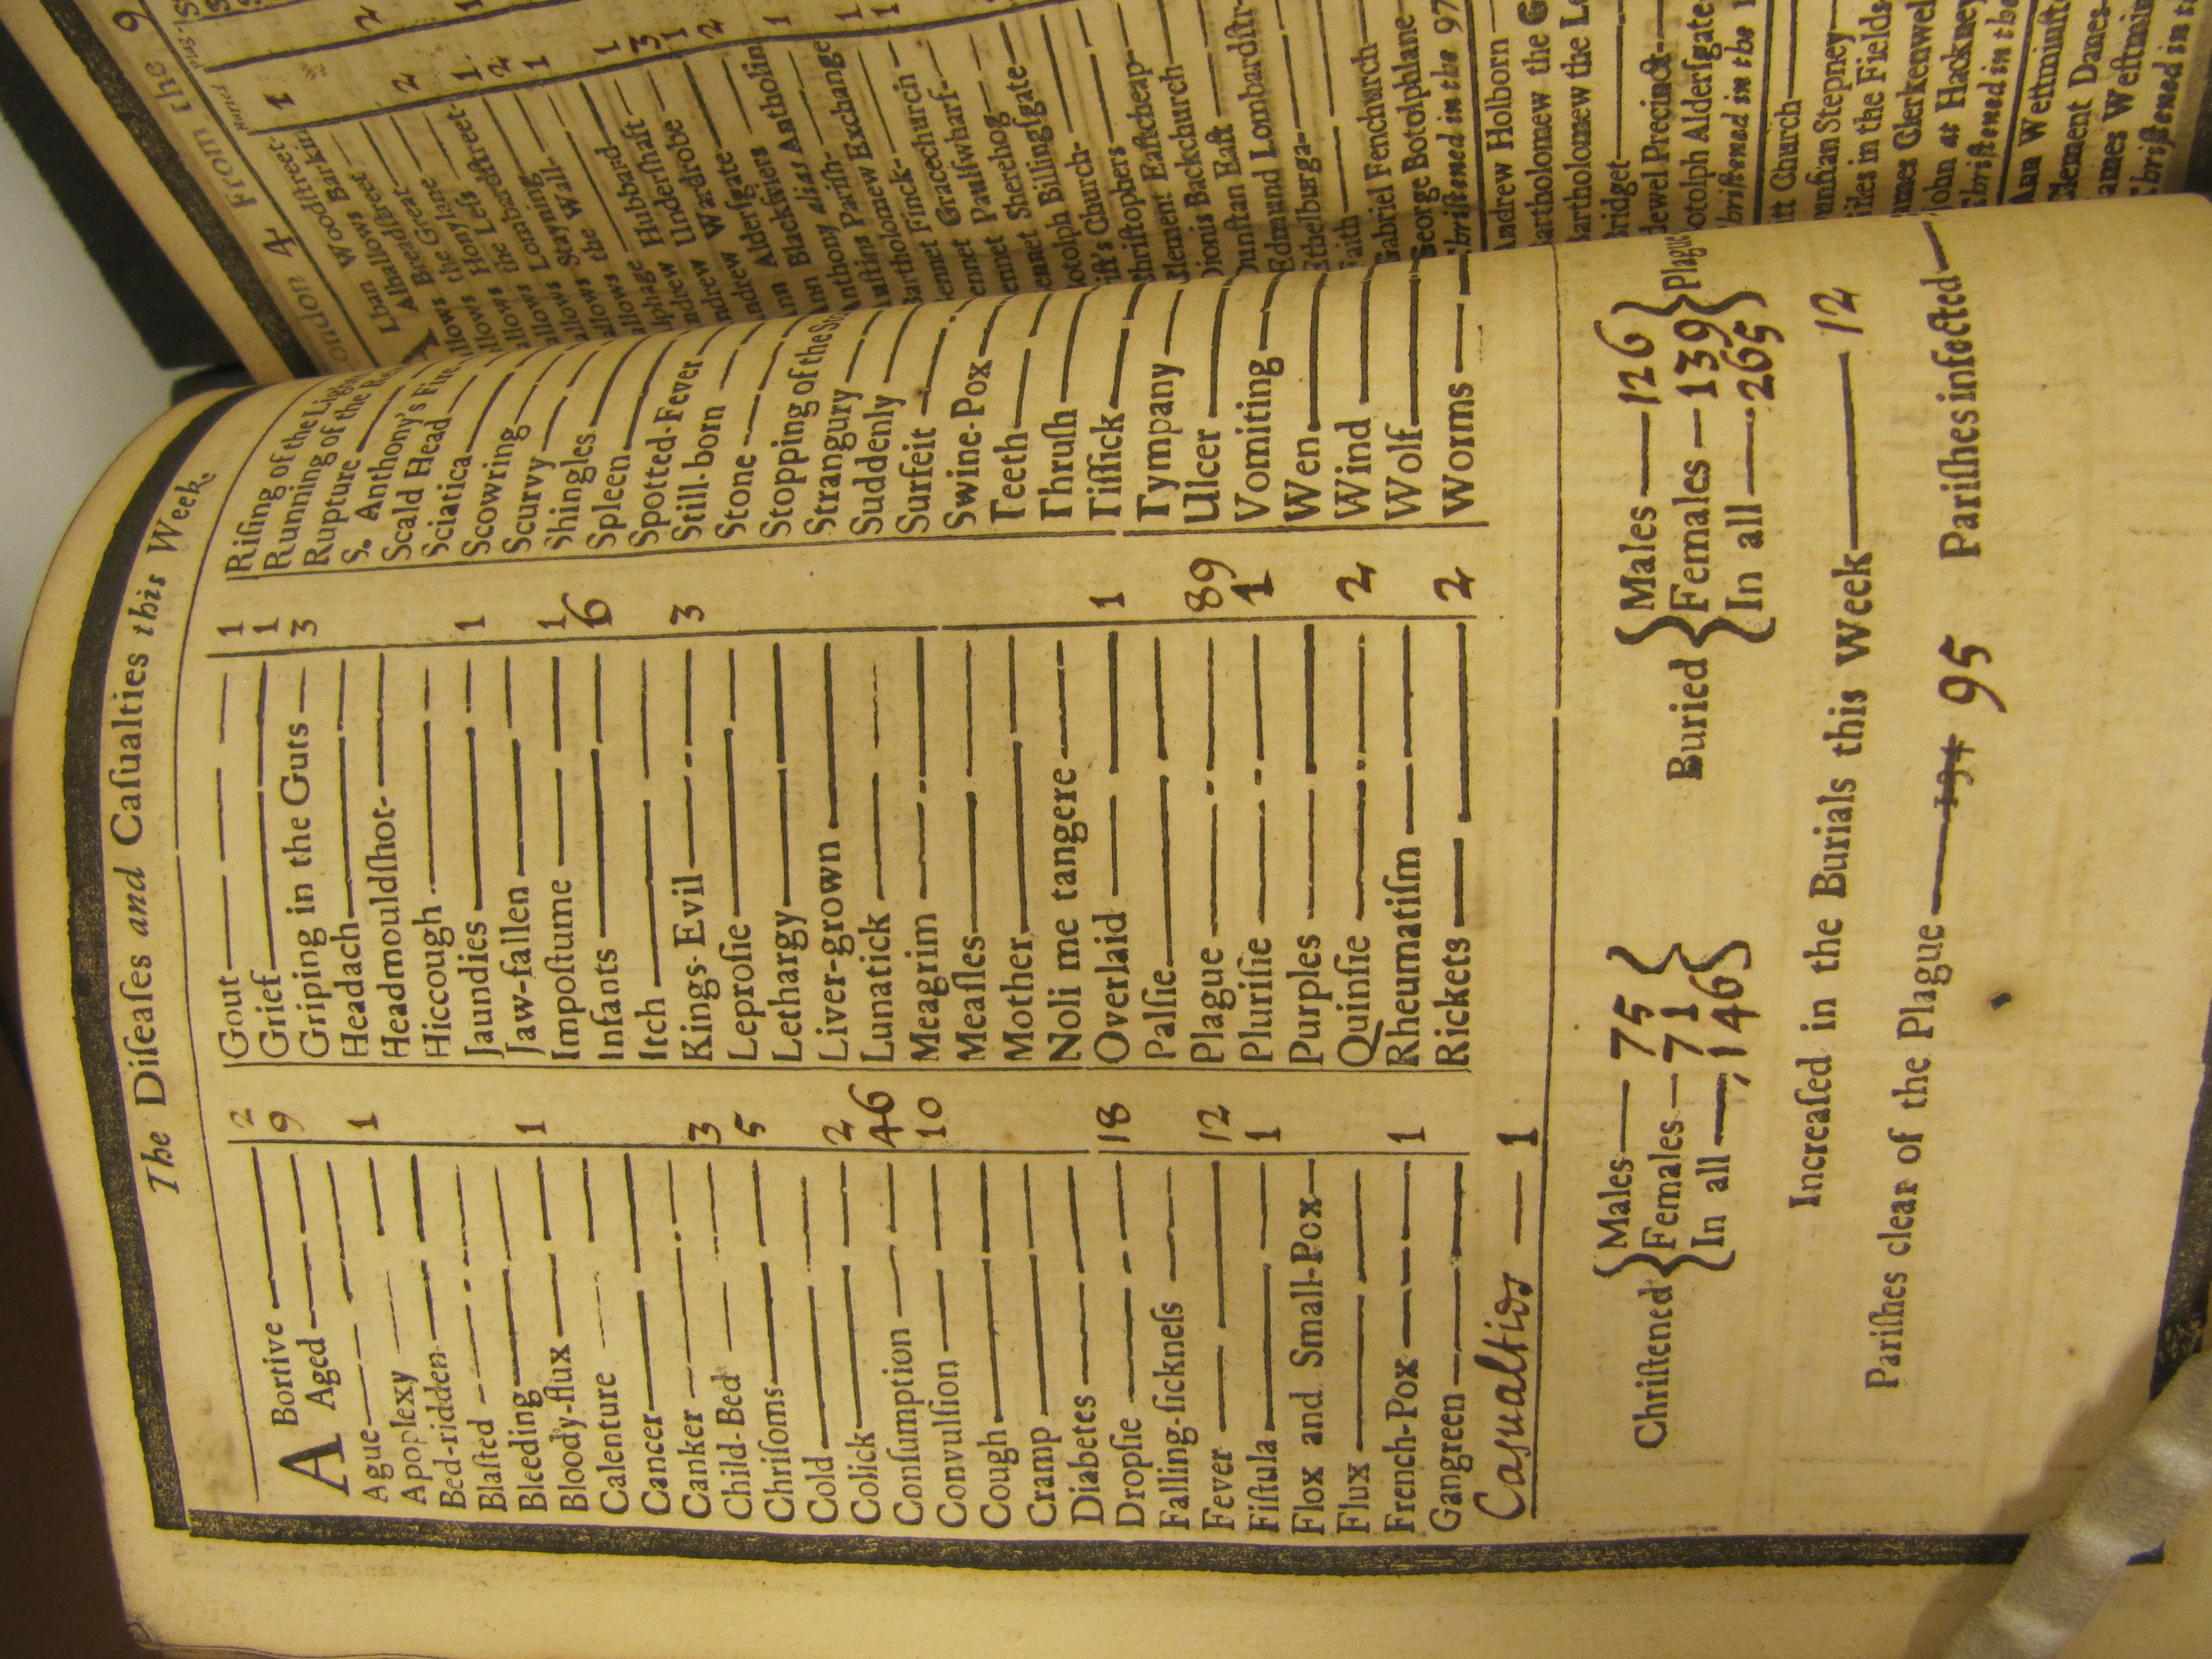 The Diſeaſes and Caſualties this Week.
A Bortive 2
Aged 9
Ague
Apoplexy 1
Bed-ridden
Blaſted
Bleeding
Bloody-flux 1
Calenture
Cancer
Canker
Child-Bed 3
Chriſoms 5
Cold
Colick 2
Conſumption 46
Convulſion 10
Cough
Cramp
Diabetes
Dropſie 18
Falling-ſickneſs
Fever 12
Fiſtula 1
Flox and Small-Pox
Flux
French-Pox 1
Gangreen
Casualtids 1
Gout 1
Grief 1
Griping in the Guts 3
Headach
Headmouldſhot
Hiccough
Jaundies 1
Jaw-fallen
Impoſtume 1
Infants 6
Itch
Kings-Evil 3
Leproſie
Lethargy
Liver-grown
Lunatick
Meagrim
Meaſles
Mother
Noli me tangere
Overlaid 1
Palſie
Plague 89
Pluriſie 1
Purples
Quinſie 2
Rheumatiſm
Rickets 2
Riſing of the
Running of the
Rupture
S. Anthony's Fire
Scald Head
Sciatica
Scowring
Scurvy
Shingles
Spleen
Spotted-Fever
Still-born
Stone
Stopping of the
Strangury
Suddenly
Surfeit
Swine-Pox
Teeth
Thruſh
Tiſſick
Tympany
Ulcer
Vomiting
Wen
Wind
Wolf
Worms
Chriſtened Males 75 Females 71 In all 146
Buried Males 126 Females 139 In all 265 Plague
Increaſed in the Burials this Week 12
Pariſhes clear of the Plague 134 95 Pariſhes infected
4 From the 9
Woodſtreet 1
Barkin
Breadſtreet 2
Great
Honylane 1
Leſs 2
Lumbardſtreet 1
Stayning
the Wall
Hubbard 1
Underſhaft 3
Wardrobe 1
Alderſgate 2
Blackfriers
alias Antholin 1
Pariſh
Bartholomew Exchange 1
Finck 1
Gracechurch
Paulſwharf
Sherehog
Billingſgate
Church
Eaſtcheap
Backchurch
Eaſt
Edmund Lombardſtr
Ethelburga
Faith
Gabriel Fenchurch
George Botolphlane
in the 97
Andrew Holborn
Bartholomew the G
Bartholomew the Le
Bridget
Precinct
Alderſgate
in the 1
Church
Stepney
in the Fields
Clerkenwel
John at Hackney
in the
Ann Weſtminſte
Clement Danes
James Weſtmin
in the